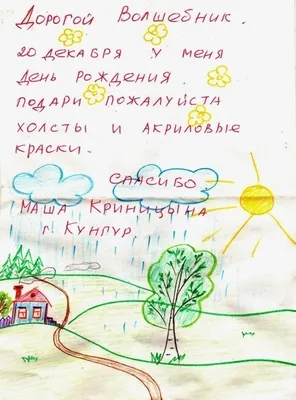 Дорогой Волшебник.
20 декабря у меня
день рождения.
подари пожалуйста
холсты и акриловые
краски.
Спасибо
Маша Криницына
г. Кунгур.